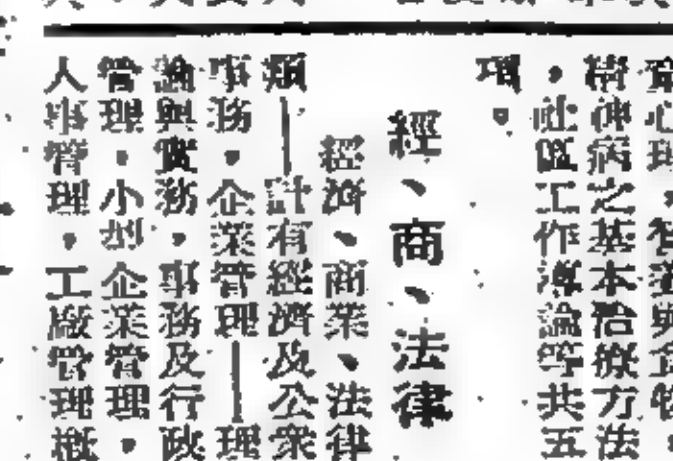 育心理，智著與食物
精神病之基本治療方法
，社區工作導論等共五
項。
經、商、法律
經濟、商業、法律
類——計有經濟及公衆
事務，企業管理——理
論與實務，事務及行政
管理，小型企業管理，
人事管理，工廠管理概